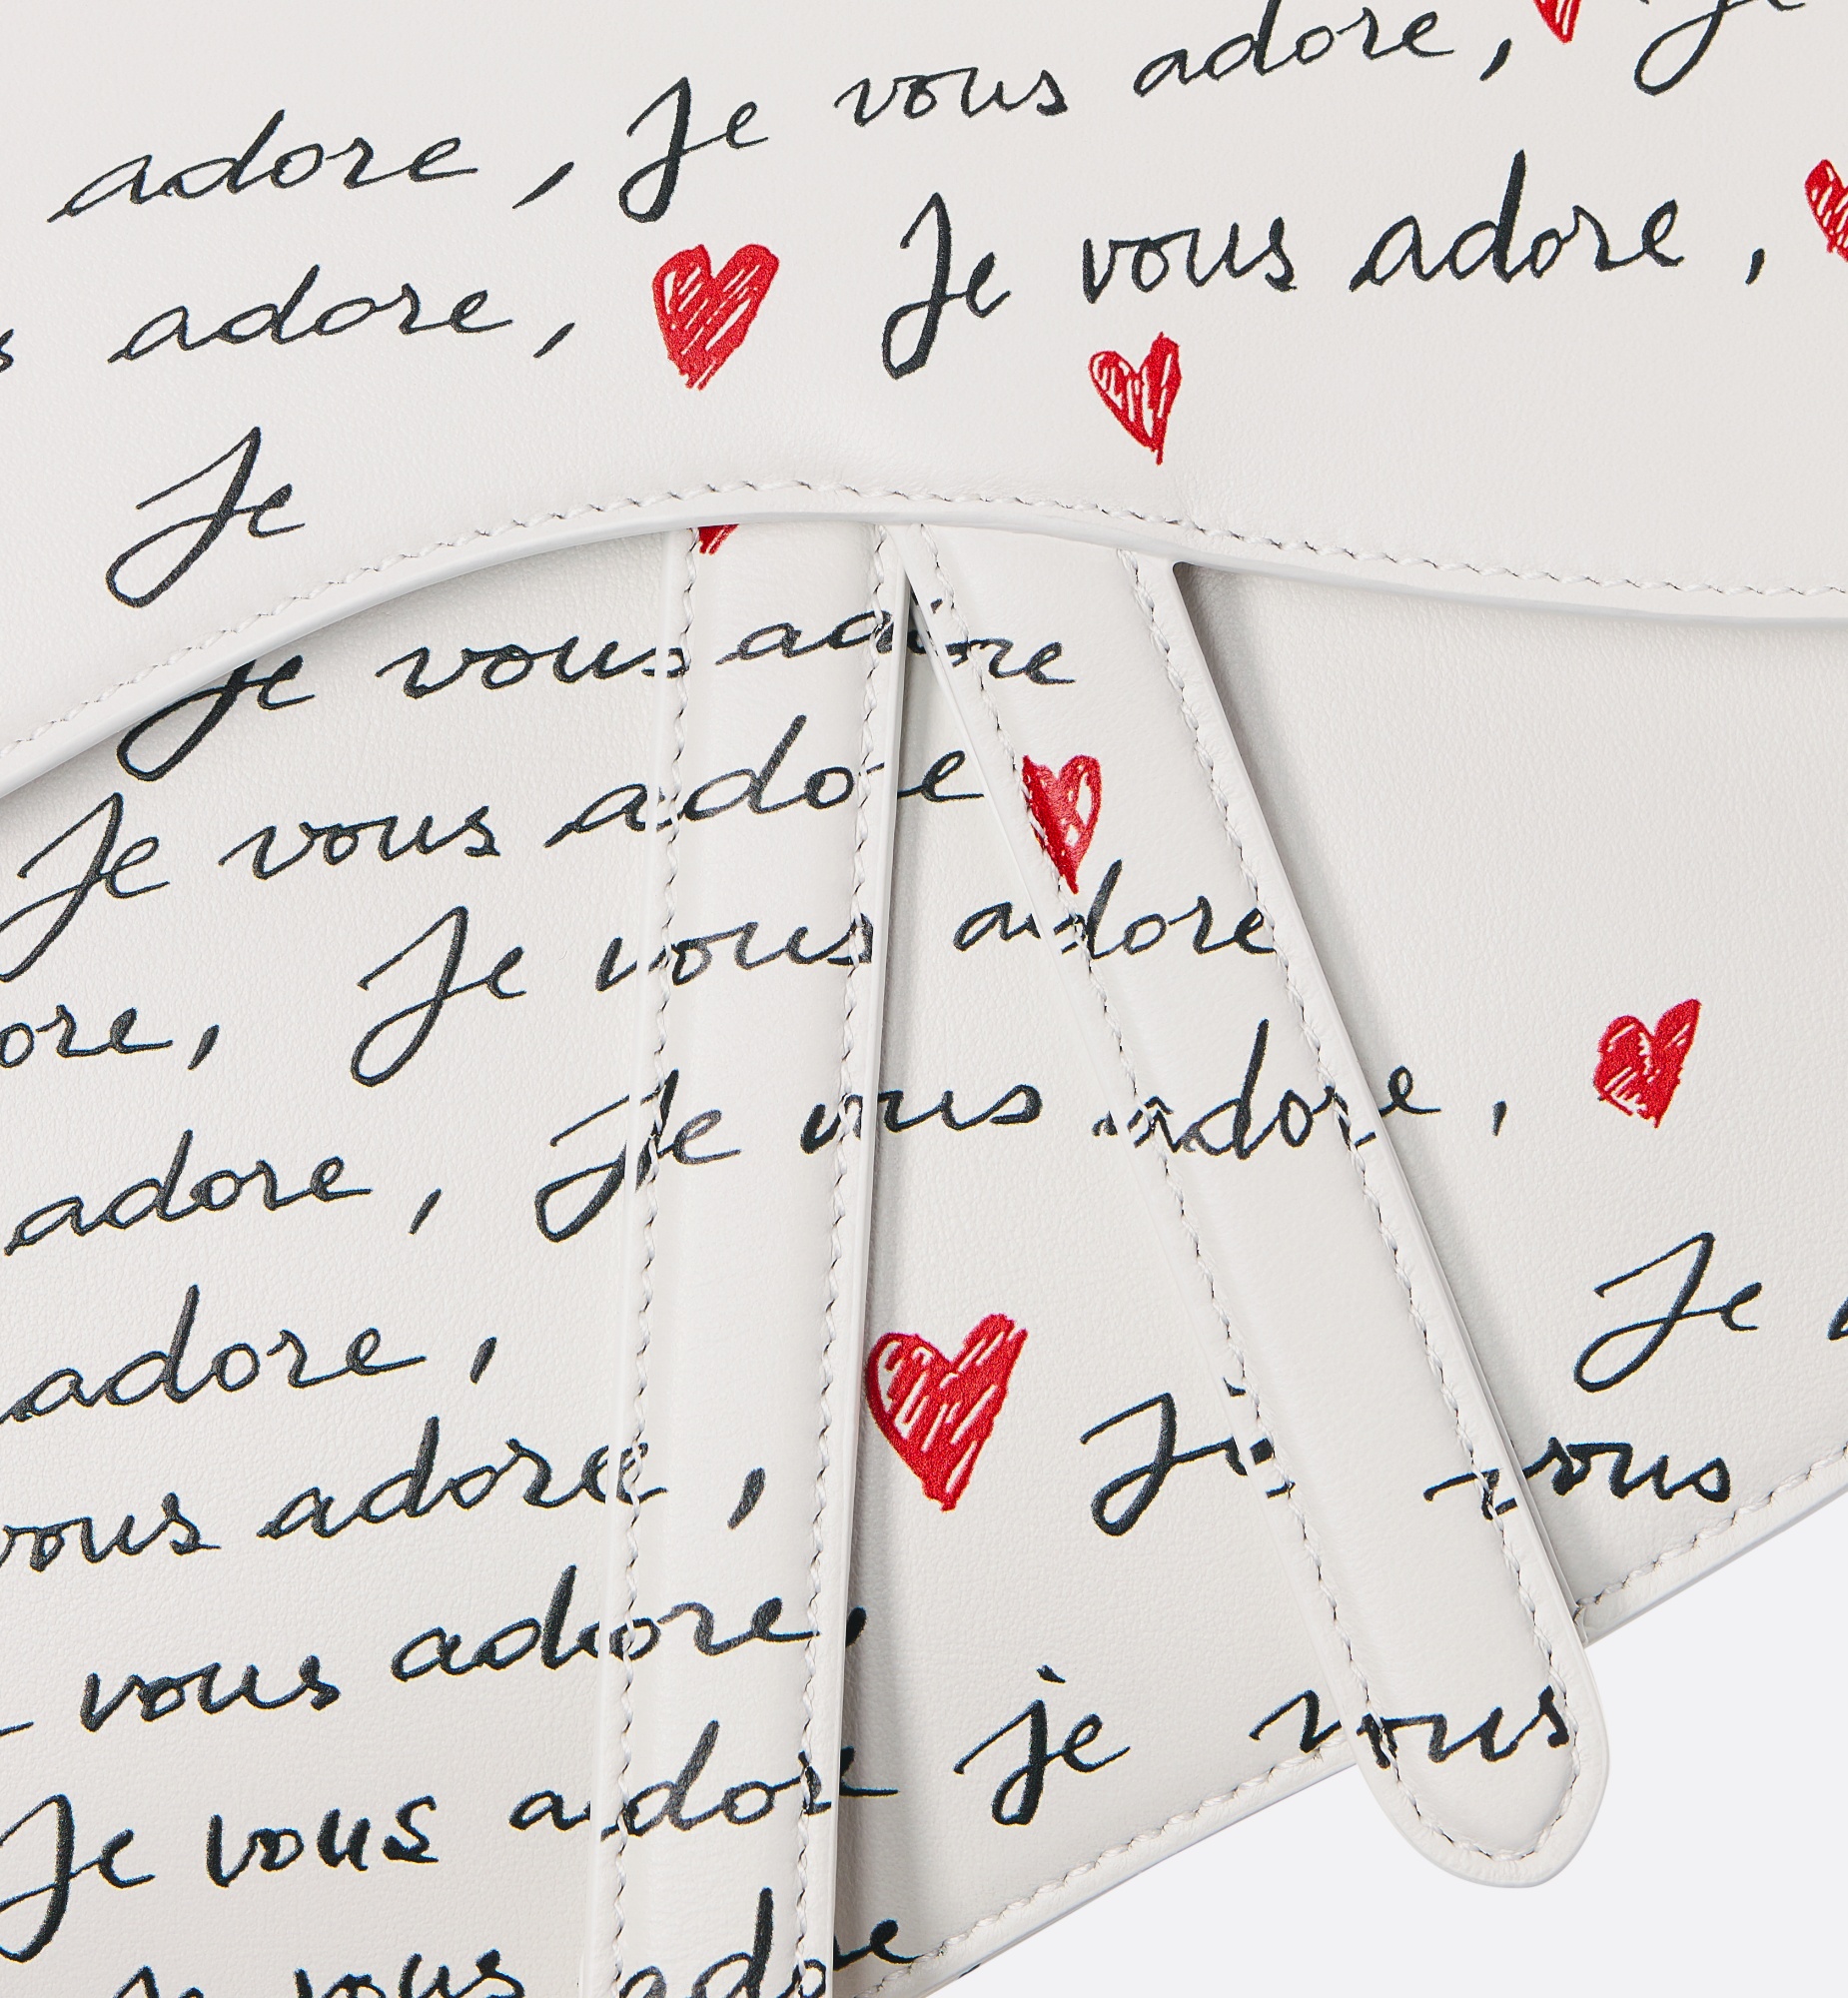 adore, Je vous adore, Je
adore, Je vous adore,
Je
Je vous adore
Je vous adore
ore, Je vous adore
adore, Je vous adore,
adore, Je
vous adore, Je vous
vous adore,
Je vous adore je vous
Je vous adore